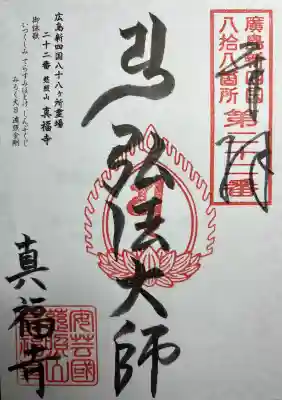 廣島新四国
八拾八箇所
第二十二番
弘法大師
広島新四国八十八ヶ所霊場
二十二番 慈照山 真福寺
御詠歌
いつくしみ てらすみほとけ しんぷくじ
みろく大日 遍照金剛
真福寺
安芸國